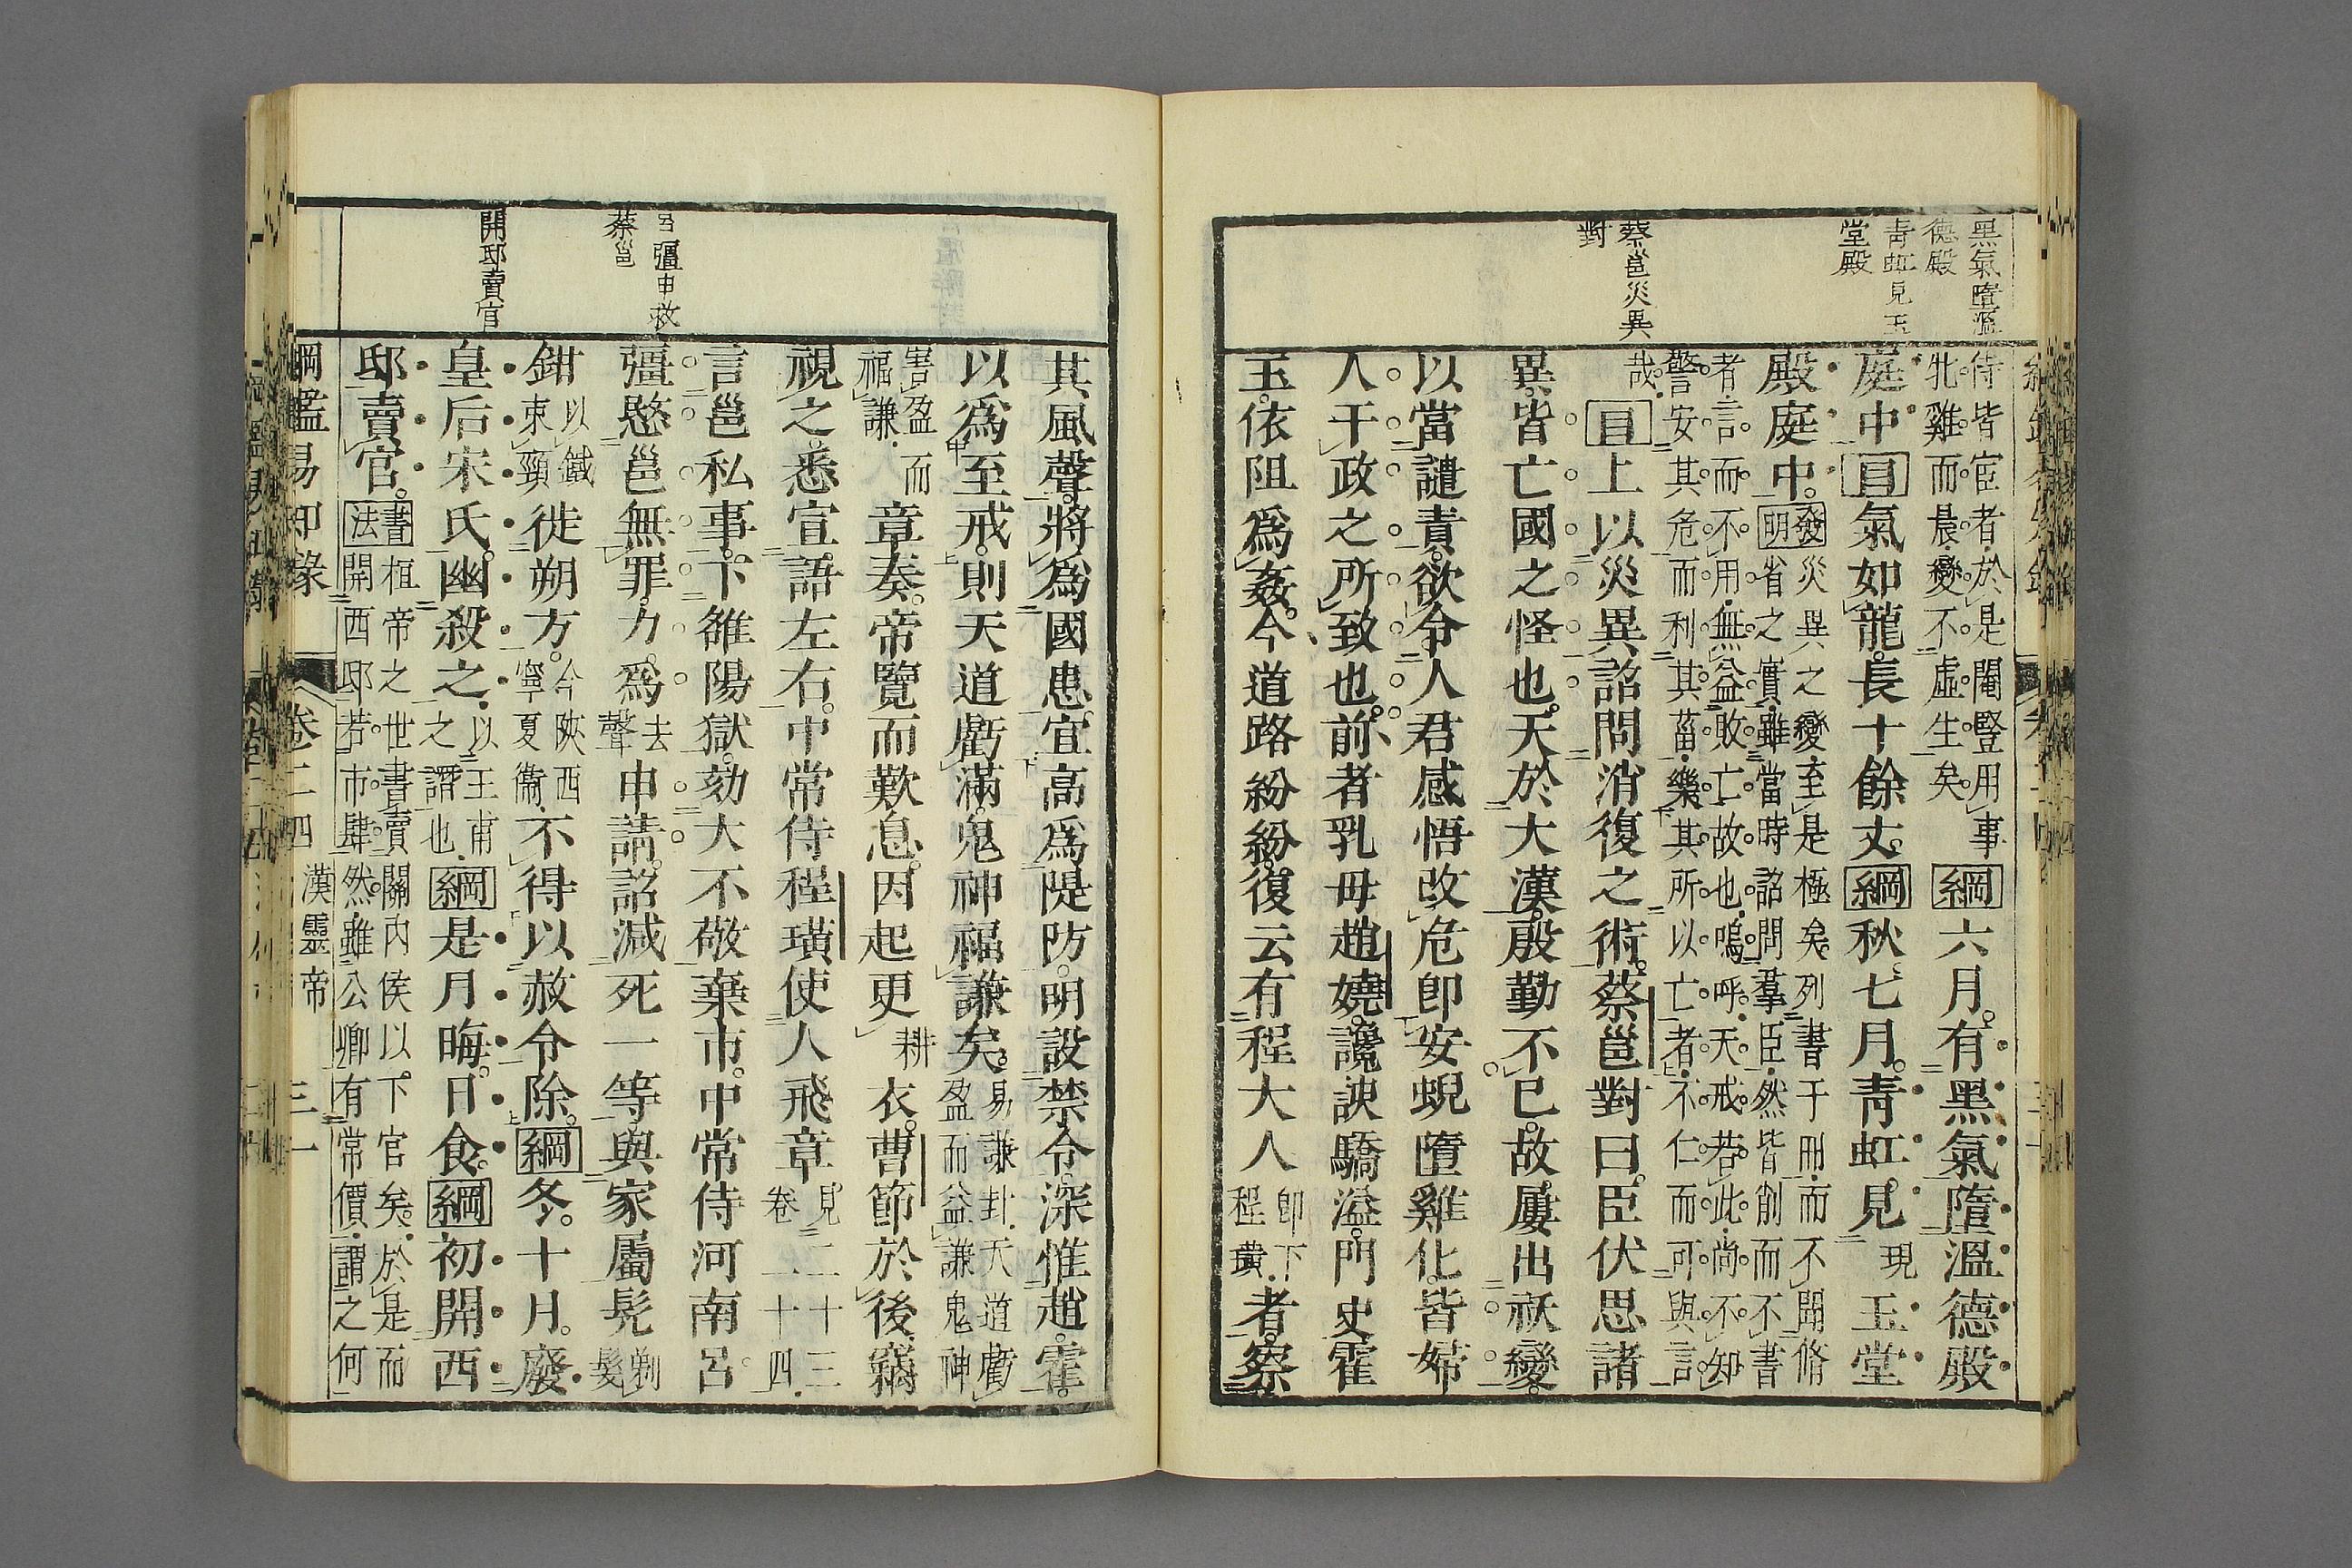 黑氣墮溫
德殿
青虹見玉
堂殿
蔡邕災異
對
侍皆宦者於是閹豎用事
牝雞而晨變不虛生矣
綱六月有黑氣墮溫德殿
庭中目氣如龍長十餘丈綱秋七月青虹見現玉堂
殿庭中
發明災異之變至是極矣列書于冊而不聞脩
省之實雖當時詔問羣臣然皆削而不書
者言而不用無益敗亡故也嗚呼天戒若此尚不知
警安其危而利其菑樂其所以亡者不仁而可與言
哉
目上以災異詔問消復之術蔡邕對曰臣伏思諸
異皆亡國之怪也天於大漢殷勤不已故屢出祅變
以當譴責欲令人君感悟改危卽安蜺墮雞化皆婦
人干政之所致也前者乳母趙嬈讒諛驕溢門史霍
玉依阻爲姦今道路紛紛復云有程大人
卽下
程璜
者察
其風聲將爲國患宜高爲隄防明設禁令深惟趙霍
以爲至戒則天道虧滿鬼神福謙矣
易謙卦天道虧
盈而益謙鬼神
害盈而
福謙
章奏帝覽而歎息因起更耕衣曹節於後竊
視之悉宣語左右中常侍程璜使人飛章
見二十三
卷二十四
言邕私事下雒陽獄劾大不敬棄市中常侍河南呂
彊愍邕無罪力爲去聲申請詔減死一等與家屬髡
剃
髮
鉗
以鐵
束頸
徙朔方
今陝西
寧夏衞
不得以赦令除綱冬十月廢
皇后宋氏幽殺之
以王甫
之譖也
綱是月晦日食綱初開西
邸賣官
書法桓帝之世書賣關內侯以下官矣於是而
開西邸若市肆然雖公卿有常價謂之何
呂彊申救
蔡邕
開邸賣官
綱鑑易知錄
卷二四
漢靈帝
三一